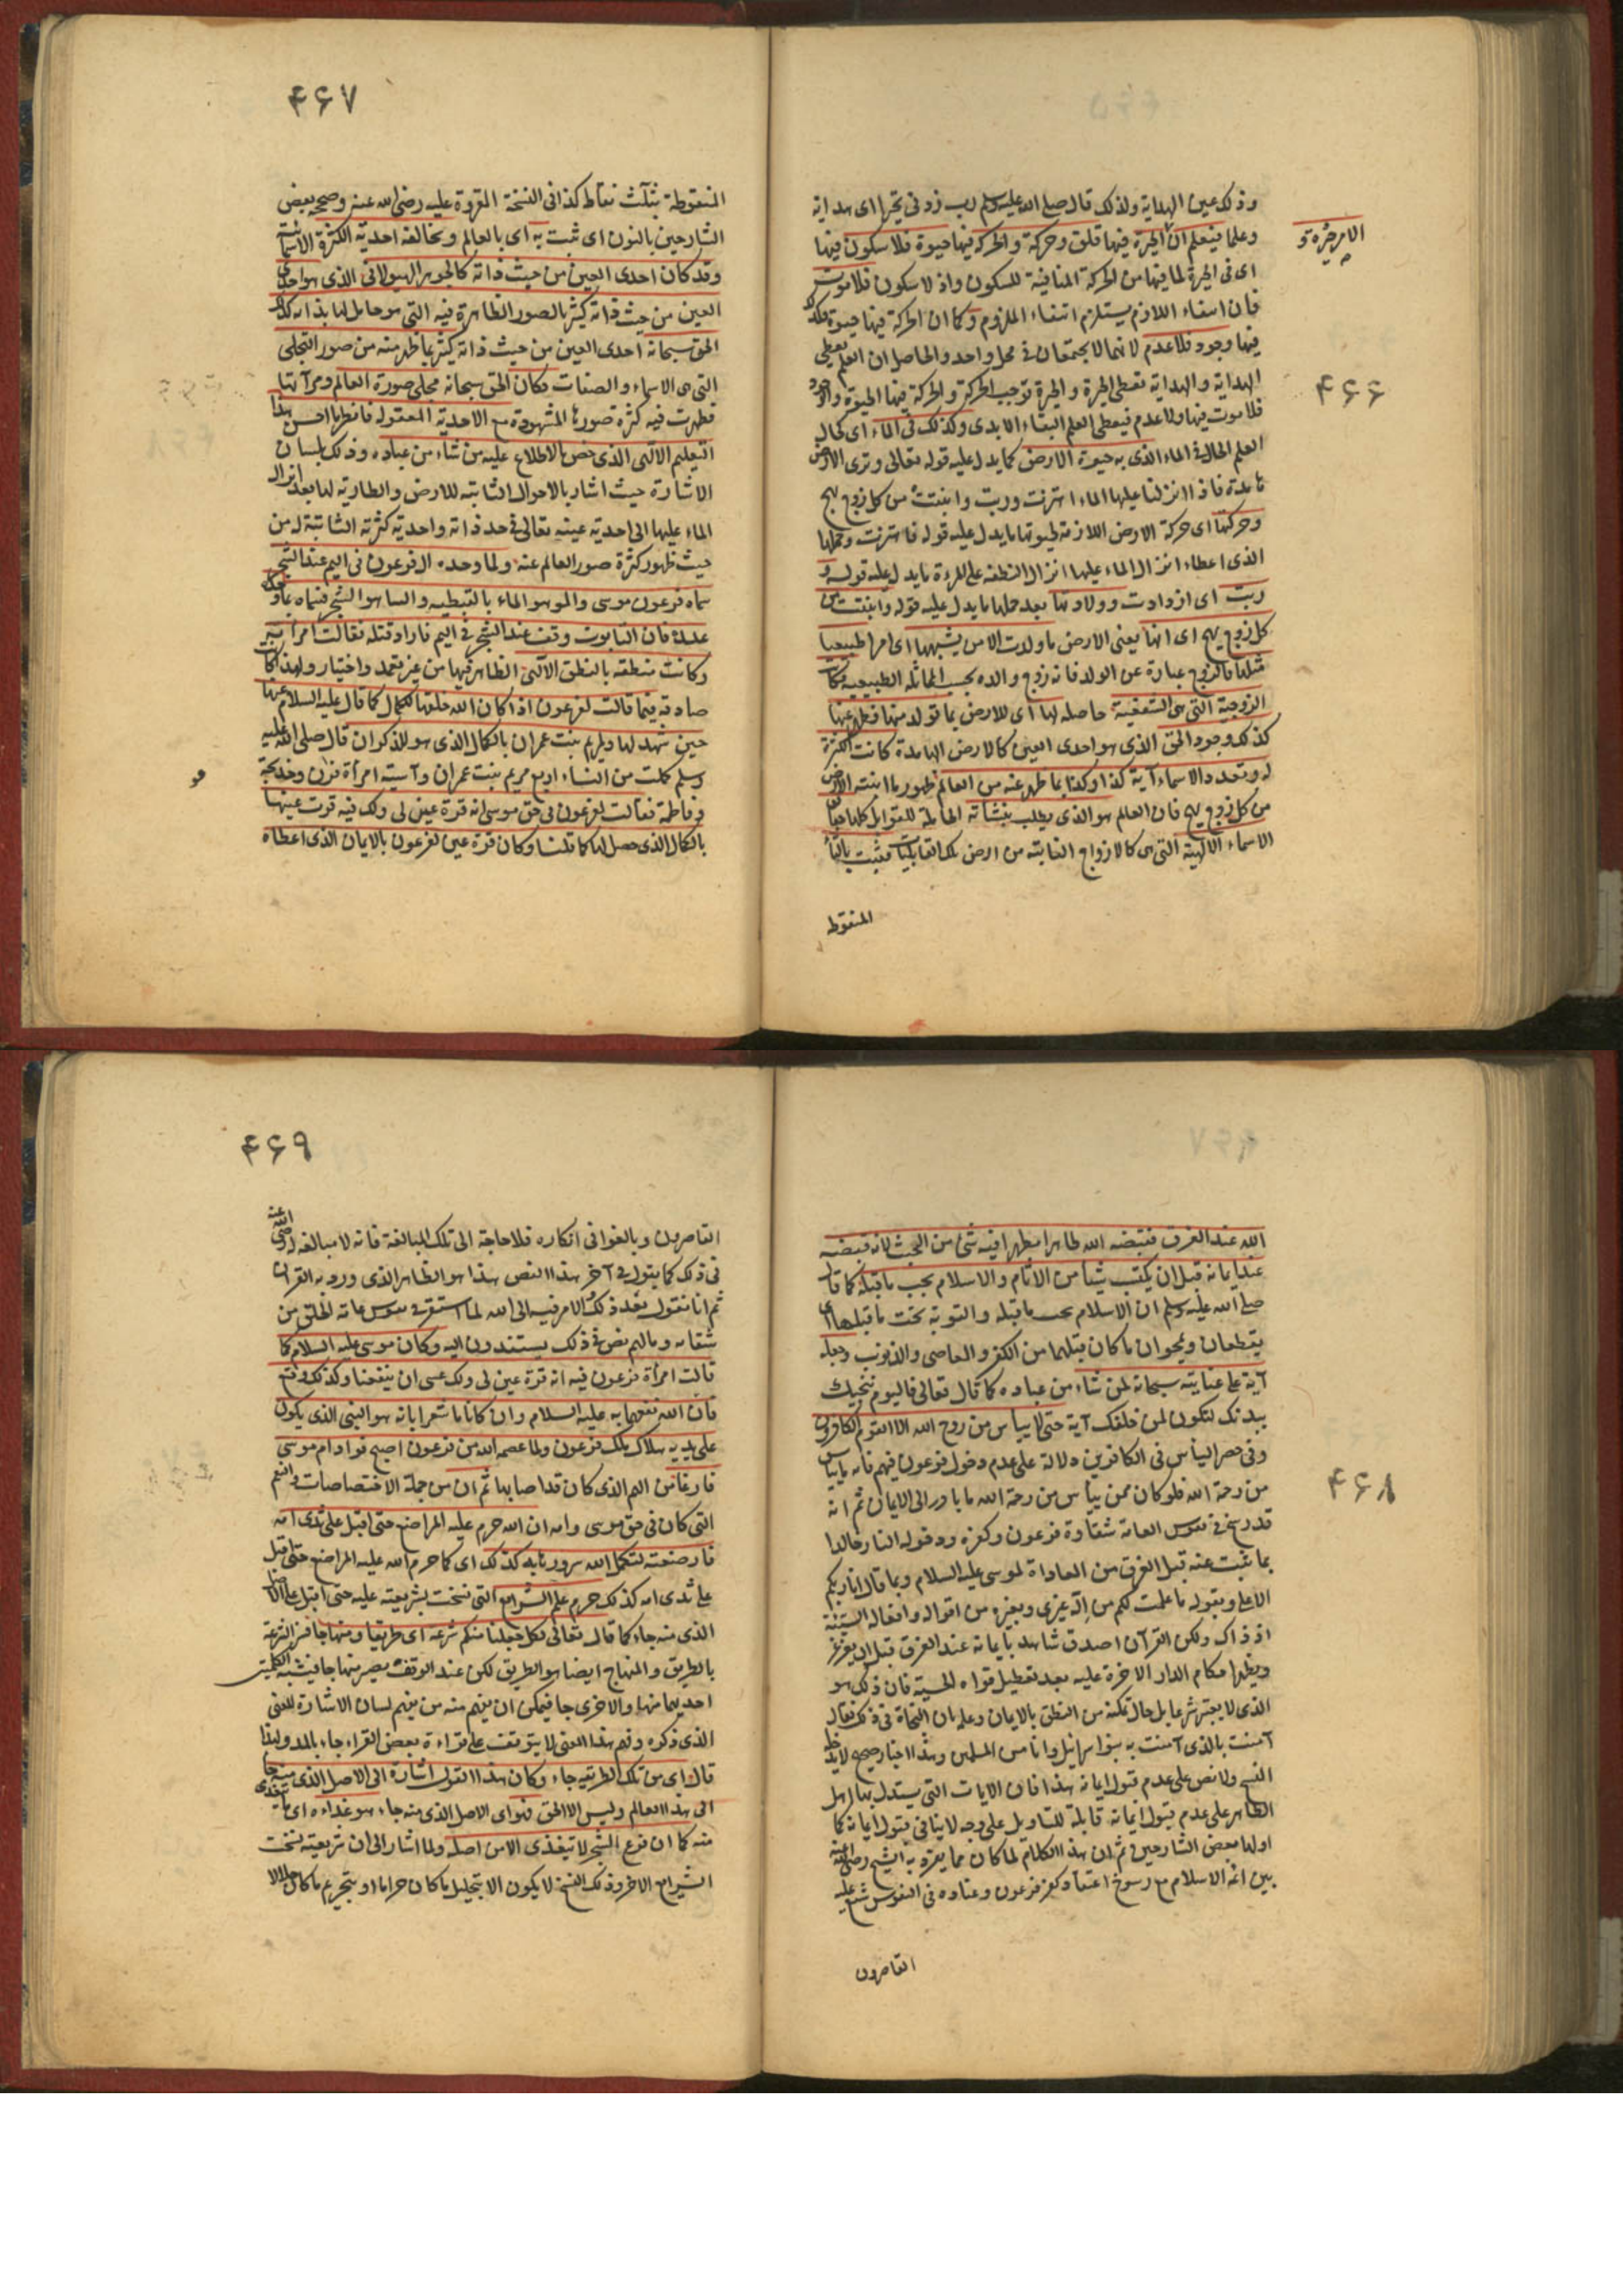 ۴۶۶
الامر حيرة
وذلك عين الهداية ولذلك قال صلى الله عليه وسلم رب زدنى تحيرا اى هداية
وعلما فيعلم ان الحيرة فيها قلق وحركة والحركة فيها حيوة فلا سكون فيها
اى فى الحيرة لما فيها من الحركة المنافية للسكون واذ لا سكون فلا موت
فان انتفاء اللازم يستلزم انتفاء الملزوم وكما ان الحركة فيها حيوة فكذلك
فيها وجود فلا عدم لانهما لا يجتمعان فى محل واحد والحاصل ان العلم يعطى
الهداية والهداية تعطى الحيرة والحيرة توجب الحركة والحركة فيها الحيوة والوجود
فلا موت فيها ولا عدم فيعطى العلم البقاء الابدى وكذلك فى الماء اى كحال
العلم الحال فى الماء الذى به حيوة الارض كما يدل عليه قوله تعالى وترى الارض
هامدة فاذا انزلنا عليها الماء اهتزت وربت وانبتت من كل زوج بهيج
وحركتها اى حركة الارض اللازمة لحيوتها ما يدل عليه قوله فاهتزت وحملها
الذى اعطاه انزال الماء عليها انزال النطفة على المرءة ما يدل عليه قوله و
ربت اى ازدادت وولادتها بعد حملها ما يدل عليه قوله وانبتت من
كل زوج بهيج اى انها يعنى الارض ما ولدت الا من يشبهها اى امرا طبيعيا
مثلها فالزوج عبارة عن الولد فانه زوج والده بحسب المماثلة الطبيعية فكانت
الزوجية التى هى الشفعية حاصلة لها اى للارض بما تولد منها وظهر عنها
كذلك وجود الحق الذى هو احدى العين كالارض الهامدة كانت الكثرة
له وتعدد الاسماء آية كذا وكذا بما ظهر عنه من العالم ظهور ما انبته الارض
من كل زوج بهيج فان العالم هو الذى يطلب بنشأته القابلة للقوابل كلها حقايق
الاسماء الالهية التى هى كالازواج النابتة من ارض تلك القابليات فثبت بالثاء
المنقوطة
۴۶۷
المنقوطة بثلث نقاط كذا فى النسخة المقروة عليه رضى الله عنه وصححه بعض
الشارحين بالنون اى ثبت به اى بالعالم وبخالقه احدية الكثرة الاسمائية
وقد كان احدى العين من حيث ذاته كالجوهر الهيولانى الذى هو احدى
العين من حيث ذاته كثير بالصور الظاهرة فيه التى هو حامل لها بذاته كذلك
الحق سبحانه احدى العين من حيث ذاته كثير بما ظهر منه من صور التجلى
التى هى الاسماء والصفات فكان الحق سبحانه مجلى صورة العالم ومرآتها
فظهرت فيه كثرة صورها المشهودة مع الاحدية المعقولة فانظر ما احسن هذا
التعليم الالهى الذى خص بالاطلاع عليه من شاء من عباده وذلك بلسان
الاشارة حيث اشار بالاحوال الثابتة للارض والطارية لها بعد انزال
الماء عليها الى احدية عينه تعالى فى حد ذاته واحدية كثرته الثابتة له من
حيث ظهور كثرة صور العالم عنه ولما وجده ال فرعون فى اليم عند الشجر
سماه فرعون موسى والمو هو الماء بالقبطية والسا هو الشجر فسماه بما وجده
عنده فان التابوت وقف عند الشجر فى اليم فاراد قتله فقالت امرأته
وكانت منطقة بالنطق الالهى الظاهر فيها من غير تعمد واختيار ولهذا كانت
صادقة فيما قالت لفرعون اذ كان الله خلقها للكمال كما قال عليه السلام عنها
حين شهد لها ولمريم بنت عمران بالكمال الذى هو للذكران قال صلى الله عليه
وسلم كملت من النساء اربع مريم بنت عمران وآسية امرأة فرعون وخديجة
وفاطمة فقالت لفرعون فى حق موسى انه قرة عين لى ولك فبه قرت عينها
بالكمال الذى حصل لها كما قلنا وكان قرة عين لفرعون بالايمان الذى اعطاه
۴۶۸
الله عند الغرق فقبضه الله طاهرا مطهرا فيه شئ من الخبث لانه قبضه
عند ايمانه قبل ان يكتسب شيئا من الاثام والاسلام يجب ما قبله كما قال
صلى الله عليه وسلم ان الاسلام يجب ما قبله والتوبة تحت ما قبلها اى
يقطعان ويمحوان ما كان قبلهما من الكفر والمعاصى والذنوب وجعله
آية على عنايته سبحانه لمن شاء من عباده كما قال تعالى فاليوم ننجيك
ببدنك لتكون لمن خلفك آية حتى لا ييأس من روح الله الا القوم الكافرون
وفى حصر اليأس فى الكافرين دلالة على عدم دخول فرعون فيهم فانه ما يئس
من رحمة الله فلو كان ممن يئس من رحمة الله ما بادر الى الايمان ثم انه
قد رسخ فى نفوس العامة شقاوة فرعون وكفره ودخوله النار خالدا
بما ثبت عنه قبل الغرق من المعاداة لموسى عليه السلام وبما قال انا ربكم
الاعلى وبقوله ما علمت لكم من اله غيرى وبغيره من اقواله وافعاله السيئة
اذ ذاك ولكن القرآن اصدق شاهد بايمانه عند الغرق قبل ان يغرغر
ويظهر احكام الدار الاخرة عليه بعد تعطيل قواه الحسية فان ذلك هو
الذى لا يعتبر شرعا بل حال تمكنه من النطق بالايمان وعلمه بان النجاة فى ذلك فقال
آمنت بالذى آمنت به بنو اسرائيل وانا من المسلمين وهذا اخبار صحيح لا يدخله
النسخ ولا نص على عدم قبول ايمانه هذا فان الايات التى يستدل بها اهل
الظاهر على عدم قبول ايمانه قابلة للتاويل على وجه لا ينافى قبول ايمانه كما
اولها بعض الشارحين ثم ان هذا الكلام لما كان مما يفرد به الشيخ رضى الله عنه
بين ائمة الاسلام مع رسوخ اعتقاد كفر فرعون وعناده فى النفوس شنع عليه
القاصرون
۴۶۹
القاصرون وبالغوا فى انكاره فلا حاجة الى تلك المبالغة فانه لا مبالغة له رضى الله عنه
فى ذلك كما يقول فى آخر هذا الفص هذا هو الظاهر الذى ورد به القرآن
ثم انا نقول بعد ذلك والامر فيه الى الله لما استقر فى نفوس عامة الخلق من
شقائه وما لهم نص فى ذلك يستندون اليه وكان موسى عليه السلام كما
قالت امرأة فرعون فيه انه قرة عين لى ولك عسى ان ينفعنا وكذلك وقع
فان الله نفعهما به عليه السلام وان كانا ما شعرا بانه هو النبى الذى يكون
على يديه هلاك ملك فرعون ولما عصمه الله من فرعون اصبح فواد ام موسى
فارغا من الهم الذى كان قد اصابها ثم ان من جملة الاختصاصات
التى كان فى حق موسى وامه ان الله حرم عليه المراضع حتى اقبل على ثدى امه
فارضعته لتكمل الله سرورها به كذلك اى كما حرم الله عليه المراضع حتى اقبل
على ثدى امه كذلك حرم علم الشرايع التى نسخت بشريعته عليه حتى اقبل على الاصل
الذى منه جاء كما قال تعالى لكل جعلنا منكم شرعة اى طريقا ومنهاجا فسر الشرعة
بالطريق والمنهاج ايضا هو الطريق لكن عند الوقف يصير منها جا فيشبه الكلمتين
احديهما منها والاخرى جا فيمكن ان يفهم منه من يفهم لسان الاشارة المعنى
الذى ذكره وفهم هذا المعنى لا يتوقف على قراءة بعض القراء جاء بالمد ولهذا
قال اى من تلك الطريقة جاء وكان هذا القول اشارة الى الاصل الذى منه جاء
الى هذا العالم وليس الا الحق فهو اى الاصل الذى منه جاء هو غذاءه اى يتغذى
منه كما ان فرع الشجر لا يتغذى الا من اصله ولما اشار الى ان شريعته نسخت
الشرايع الاخر وذلك النسخ لا يكون الا بتحليل ما كان حراما او بتحريم ما كان حلالا